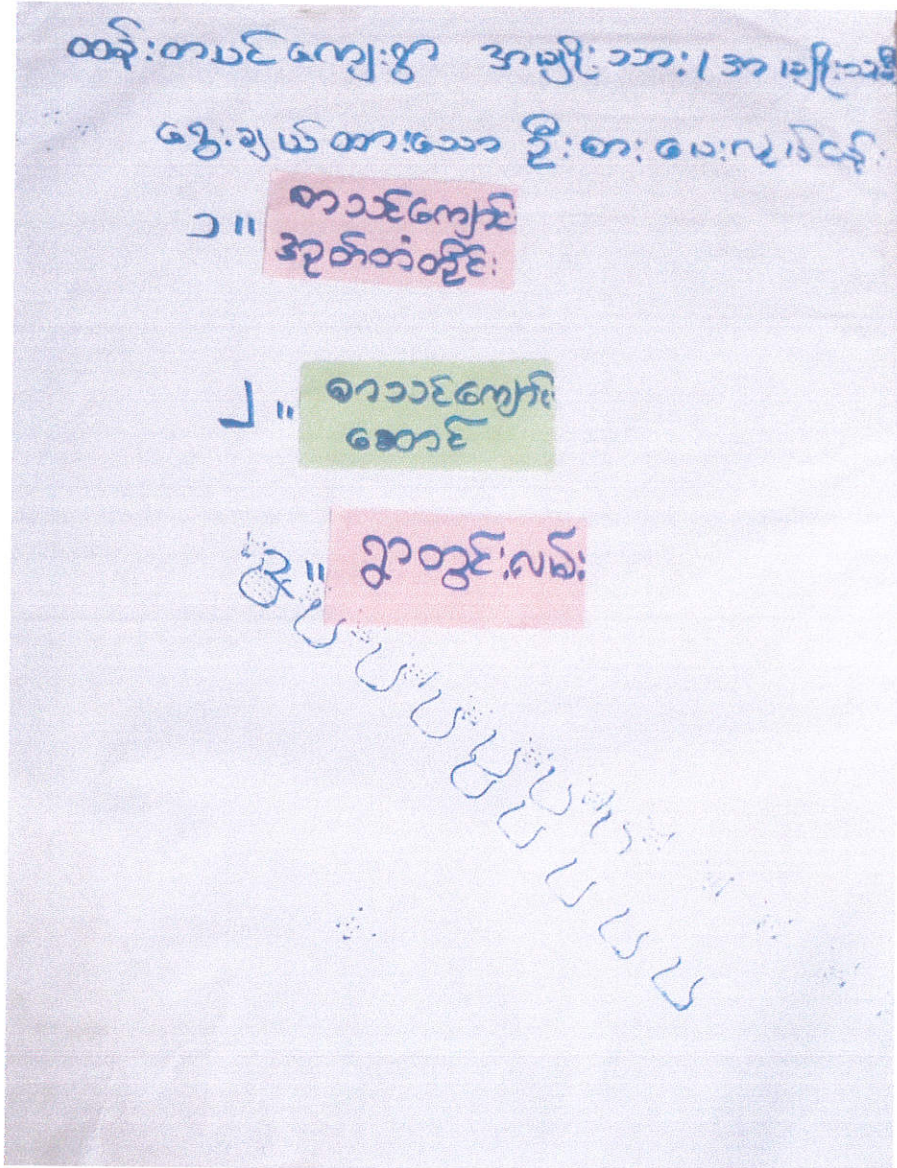 ထန်းတပင်ကျေးရွာ အမျိုးသား/အမျိုးသမီး
ရွေးချယ်ထားသော ဦးစားပေးလုပ်ငန်း
၁။ စာသင်ကျောင်း
အုတ်တံတိုင်း
၂။ စာသင်ကျောင်း
ဆောင်
၃။ ရွာတွင်းလမ်း